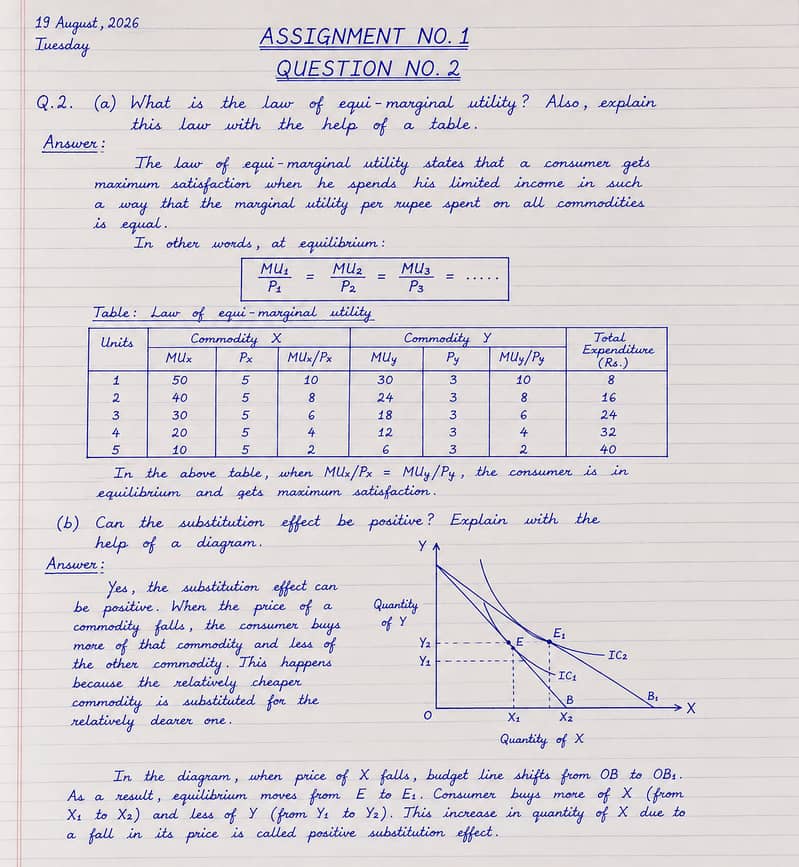 19 August, 2026
Tuesday
ASSIGNMENT NO. 1
QUESTION NO. 2
Q.2. (a) What is the law of equi-marginal utility? Also, explain
this law with the help of a table.
Answer:
The law of equi-marginal utility states that a consumer gets
maximum satisfaction when he spends his limited income in such
a way that the marginal utility per rupee spent on all commodities
is equal.
In other words, at equilibrium:
MU₁/P₁ = MU₂/P₂ = MU₃/P₃ = .....
Table: Law of equi-marginal utility
Units | Commodity X | Commodity Y | Total Expenditure (Rs.)
MUx | Px | MUx/Px | MUy | Py | MUy/Py
1 | 50 | 5 | 10 | 30 | 3 | 10 | 8
2 | 40 | 5 | 8 | 24 | 3 | 8 | 16
3 | 30 | 5 | 6 | 18 | 3 | 6 | 24
4 | 20 | 5 | 4 | 12 | 3 | 4 | 32
5 | 10 | 5 | 2 | 6 | 3 | 2 | 40
In the above table, when MUx/Px = MUy/Py, the consumer is in
equilibrium and gets maximum satisfaction.
(b) Can the substitution effect be positive? Explain with the
help of a diagram.
Answer:
Yes, the substitution effect can
be positive. When the price of a
commodity falls, the consumer buys
more of that commodity and less of
the other commodity. This happens
because the relatively cheaper
commodity is substituted for the
relatively dearer one.
Y
Quantity
of Y
Y₂
Y₁
E
E₁
IC₂
IC₁
B
B₁
X
O
X₁
X₂
Quantity of X
In the diagram, when price of X falls, budget line shifts from OB to OB₁.
As a result, equilibrium moves from E to E₁. Consumer buys more of X (from
X₁ to X₂) and less of Y (from Y₁ to Y₂). This increase in quantity of X due to
a fall in its price is called positive substitution effect.